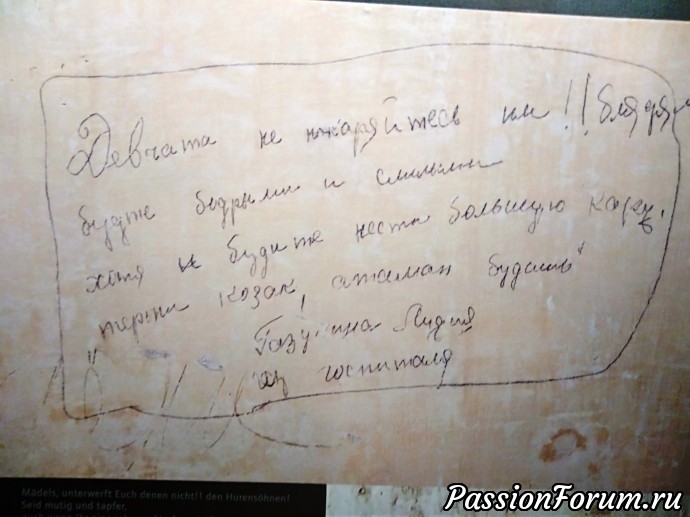 Девчата не покаряйтесь им!! блядям
будте бодрыми и смелыми
хотя и будите нести большую кару,
"терпи козак, атаман будишь"
Лидия
из госпиталя
Mädels, unterwerft Euch denen nicht!! den Hurensöhnen!
Seid mutig und tapfer,
PassionForum.ru